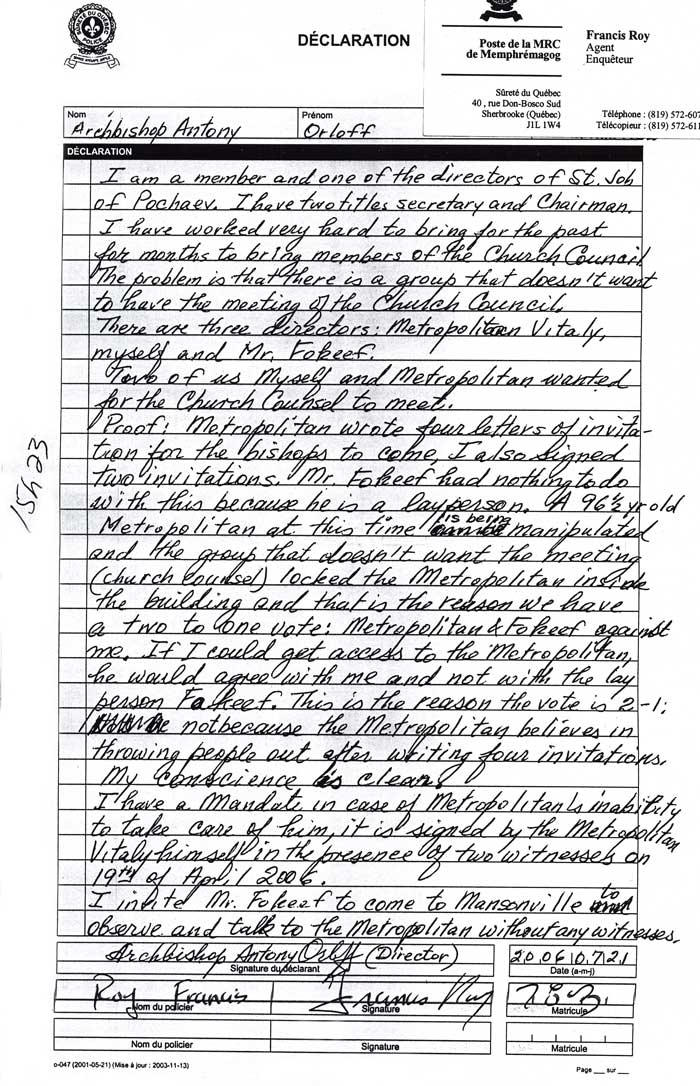 SÛRETÉ DU QUÉBEC
POLICE
DÉCLARATION
Poste de la MRC
de Memphrémagog
Francis Roy
Agent
Enquêteur
Sûreté du Québec
40 , rue Don-Bosco Sud
Sherbrooke (Québec)
J1L 1W4
Téléphone : (819) 572-607
Télécopieur : (819) 572-611
Nom
Archbishop Antony
Prénom
Orloff
DÉCLARATION
I am a member and one of the directors of St. Job
of Pochaev. I have two titles secretary and Chairman.
I have worked very hard to bring for the past
for months to bring members of the Church Council
The problem is that there is a group that doesn't want
to have the meeting of the Church Council.
There are three directors: Metropolitan Vitaly,
myself and Mr. Fokeef.
Two of us Myself and Metropolitan wanted
for the Church Counsel to meet.
Proof: Metropolitan wrote four letters of invita-
tion for the bishops to come, I also signed
two invitations. Mr. Fokeef had nothing to do
with this because he is a lay person. A 96½ yr old
Metropolitan at this time is being manipulated
and the group that doesn't want the meeting
(church counsel) locked the Metropolitan inside
the building and that is the reason we have
a two to one vote: Metropolitan & Fokeef against
me. If I could get access to the Metropolitan,
he would agree with me and not with the lay
person Fokeef. This is the reason the vote is 2-1;
not because the Metropolitan believes in
throwing people out after writing four invitations.
My conscience is clear.
I have a Mandate in case of Metropolitan's inability
to take care of him, it is signed by the Metropolitan
Vitaly himself in the presence of two witnesses on
19th of April 2006.
I invite Mr. Fokeef to come to Mansonville to
observe and talk to the Metropolitan without any witnesses.
15h23
Archbishop Antony Orloff (Director)
Signature du déclarant
2006 07 21
Date (a-m-j)
Roy Francis
Nom du policier
Francis Roy
Signature
Matricule
Nom du policier
Signature
Matricule
o-047 (2001-05-21) (Mise à jour : 2003-11-13)
Page ___ sur ___